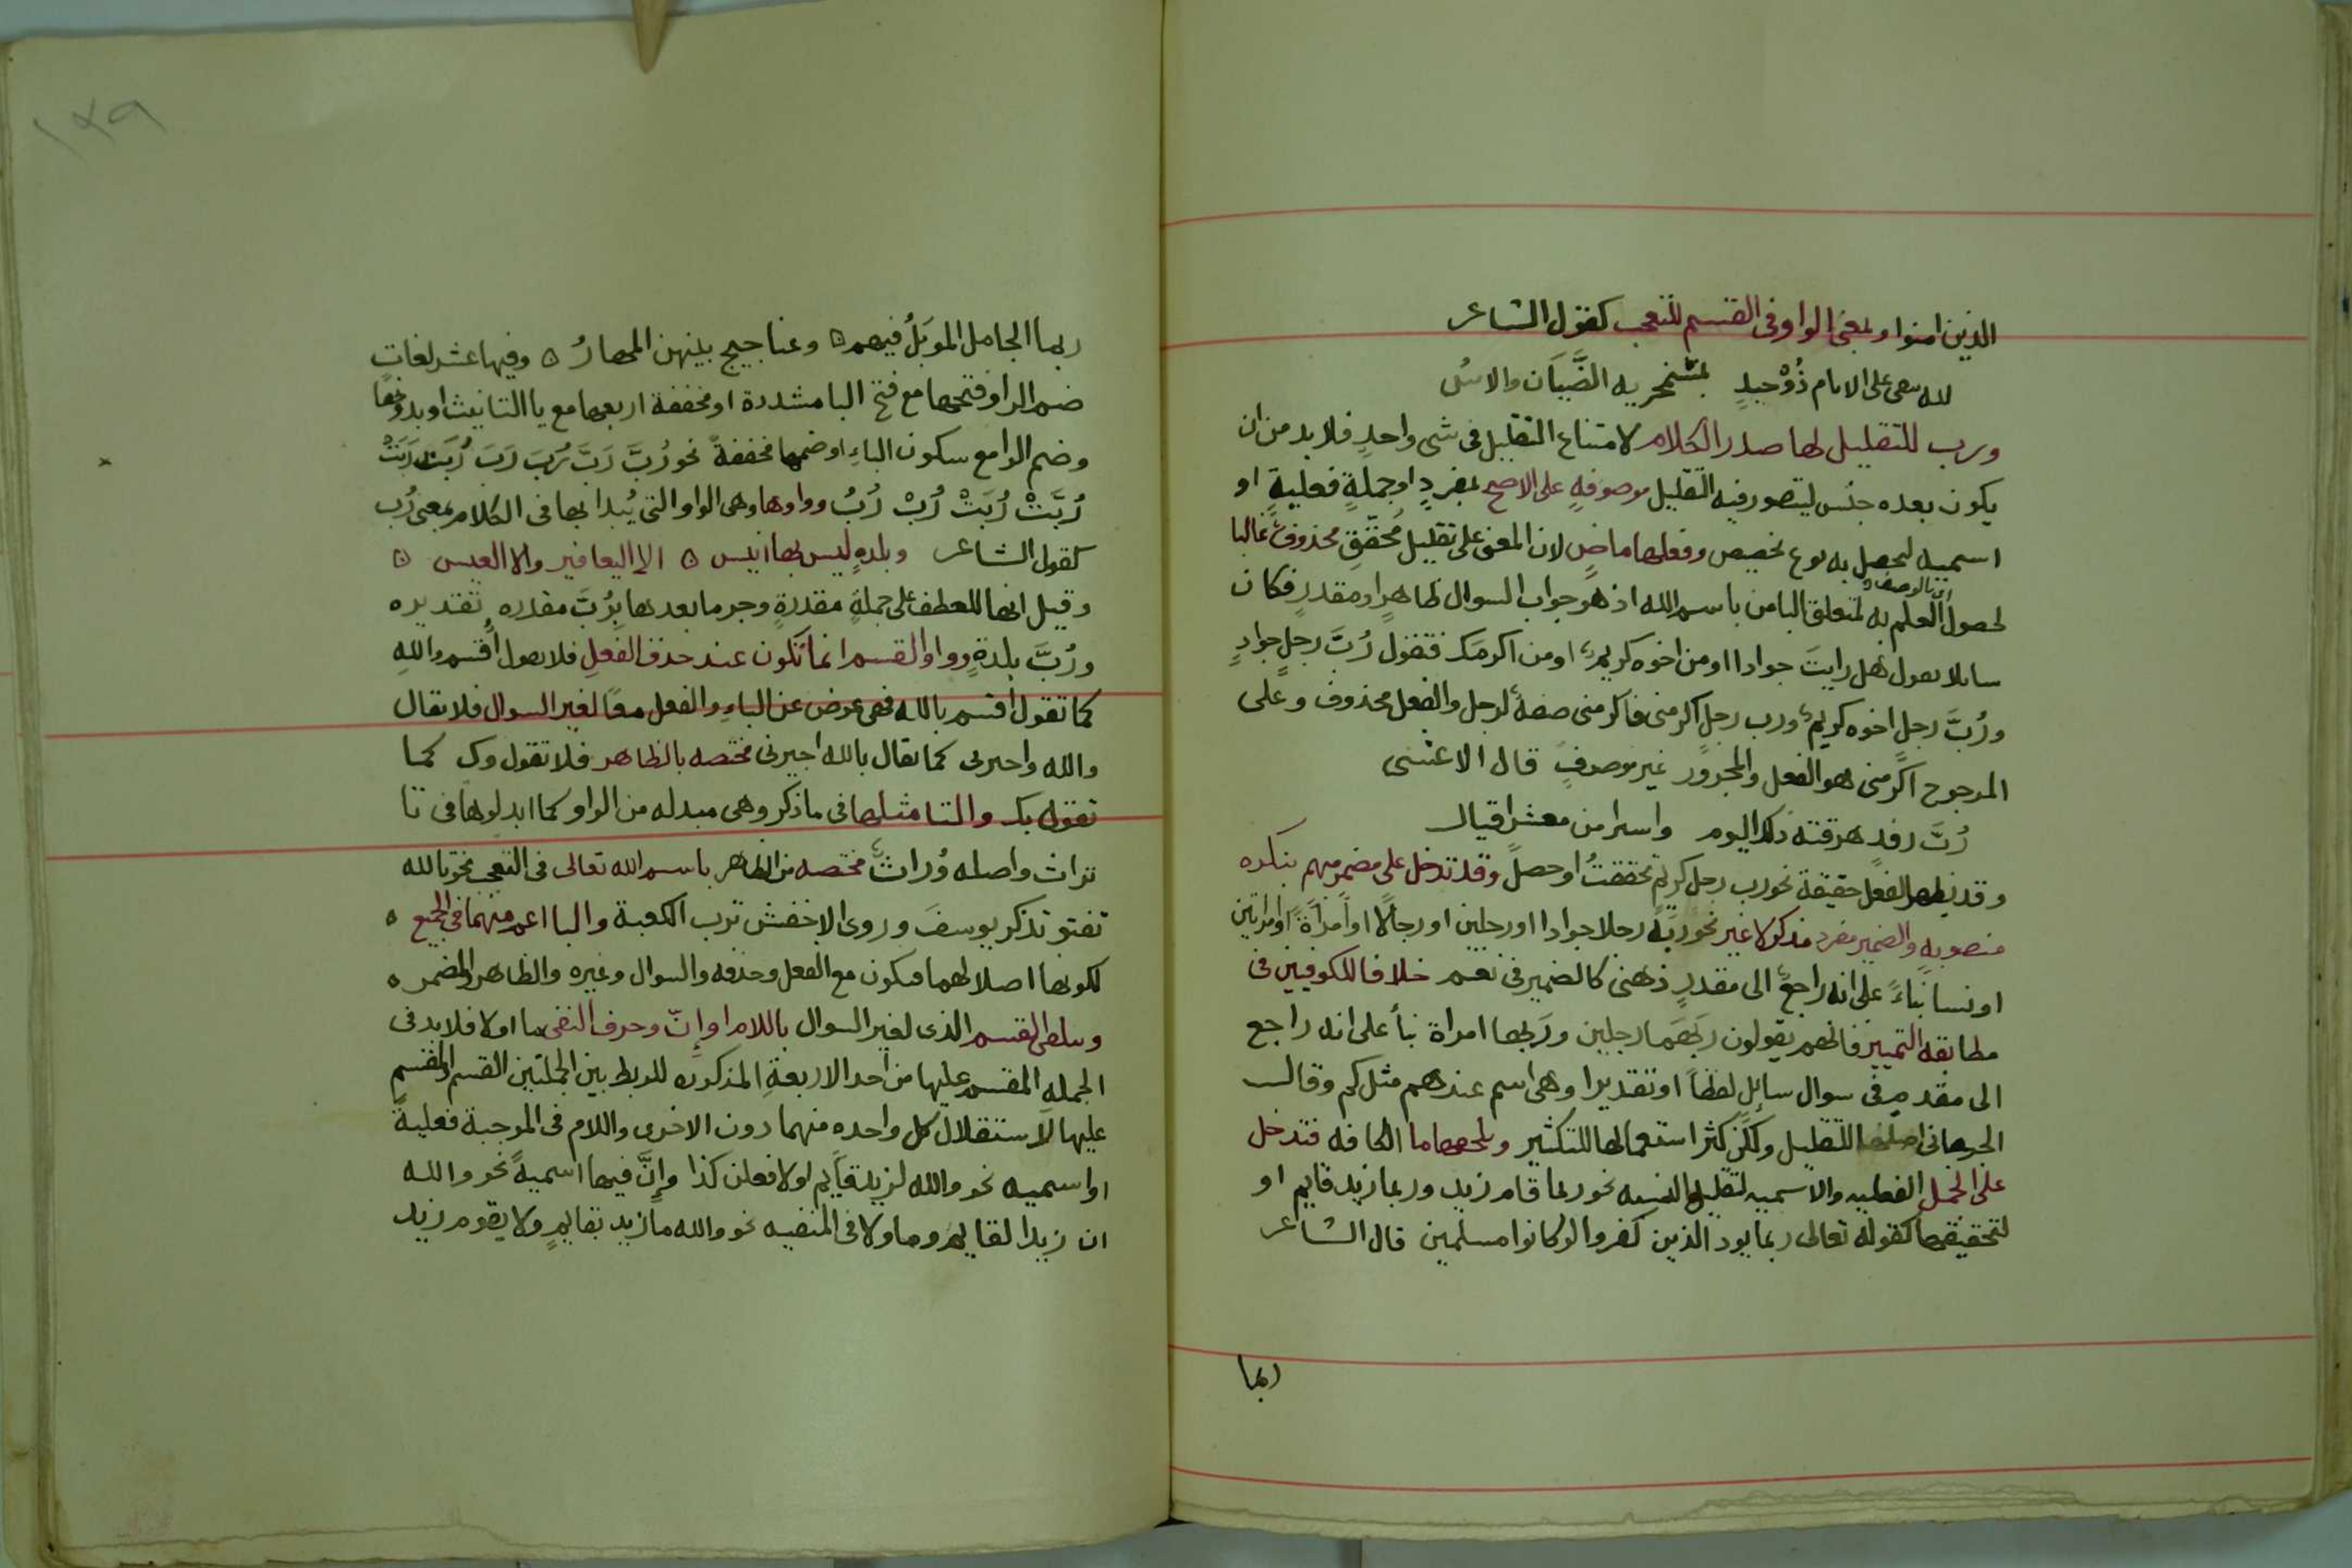 الذين امنوا وبمعنى الواو فى القسم للتعجب كقول الشاعر
لله يبقى على الايام ذُوْ حيدٍ بمشمخر به الضَّيَان والاسُ
ورب للتقليل لها صدر الكلام لامتناع التقليل فى شى واحدٍ فلا بد من ان
يكون بعده جنس ليتصور فيه التقليل موصوفهٍ على الاصح بمفردٍ او جملةٍ فعليةٍ او
اسميه لحصل به نوع تخصيص وفعلها ماضٍ لان المعنى على تقليل مُحقّقٍ محذوفٌ غالبا
لحصول العلم به لمتعلق البا من باسم الله اذ هو جواب السوال ظاهرٍ او مقدرٍ فكان
سايلا يقول هل رايتَ جوادا او من اخوه كريمٌ او من اكرمَك فتقول رُبَّ رجلٍ جوادٍ
ورُبَّ رجلٍ اخوه كريمٌ ورب رجلٍ اكرمنى فاكرمنى صفةٌ لرجل والفعل محذوف وعلى
المرجوح اكرمنى هو الفعل والمجرور غير موصوفٍ قال الاعشى
رُبَّ رفدٍ هرقته ذلك اليوم واسرا من معشر اقيال
وقد يظهر الفعل حقيقة نحو رب رجل كريمٍ تحققتُ او حصل وقد تدخل على مضمر مبهم بنكره
منصوبهٍ والضمير مفرد مذكر لا غير نحو ربَّه رجلا جوادا او رجلين او رجالًا او امراةً او امراتين
او نسا بناءً على انه راجعٌ الى مقدرٍ ذهنى كالضمير فى نعم خلافا للكوفيين فى
مطابقه التمييز فانهم يقولون ربَّهما رجلين وربَّها امراة بناً على انه راجع
الى مقدمٍ فى سوال سايل لفظاً او تقديرا وهى اسم عندهم مثل كم وقال
الجرجانى اصلها للتقليل ولكن كثر استعمالها للتكثير وتلحقها ما الكافه فتدخل
على الجمل الفعليه والاسميه لتقليل النسبه نحو ربما قام زيد وربما زيد قايم او
لتحقيقها كقوله تعالى ربما يود الذين كفروا لو كانوا مسلمين قال الشاعر
ربما
١٢٩
ربما الجامل الموبَلُ فيهم ه وعناجيج بينهن المهارُ ه وفيها عشر لغات
ضم الرا وفتحها مع فتح البا مشددة او مخففة اربعها مع يا التانيث او بدونها
وضم الرا مع سكون الباءِ او ضمها مخففةً نحو رُبَّ رَبَّ رُبَ رَبَ رُبَّت رَبَتْ
رُبَّتْ رُبَتْ رُبْ رُبُ وواوها وهى الواو التى يُبدا بها فى الكلام بمعنى رُب
كقول الشاعر وبلدهٍ ليس بها انيس ه الا اليعافير والا العيس ه
وقيل انها للعطف على جملةٍ مقدرةٍ وجر ما بعدها بِرُبَّ مقدره تقديره
ورُبَّ بلدةٍ وواو القسم انما تكون عند حذف الفعلِ فلا يقول اُقسم واللهِ
كما تقول اُقسم بالله فهى عوض عن الباءِ والفعل معًا لغير السوال فلا يقال
والله واخبرنى كما يقال بالله اخبرنى مختصه بالظاهر فلا تقول وك كما
تقول بك والتا مثلها فى ما ذكر وهى مبدله من الواو كما ابدلوها فى تا
تراث واصله وُراثٌ مختصه من الظاهر باسم الله تعالى فى التعجب نحو تالله
تفتو تذكر يوسفَ وروى الاخفش ترب الكعبة والبا اعم منهما فى الجميع ه
لكونها اصلا لهما فتكون مع الفعل وحذفه والسوال وغيره والظاهر والمضمر ه
ويتلقى القسم الذى لغير السوال باللام او إنّ وحرف النفى ما او لا فلا بد فى
الجمله المقسم عليها من احد الاربعةِ المذكوره للربط بين الجملتين القسم والمقسم
عليها لاستقلال كل واحده منهما دون الاخرى واللام فى الموجبة فعليةً
او اسميه نحو والله لزيد قايم او لافعلن كذا وإنَّ فيها اسميةً نحو والله
ان زيدا لقايم وما ولا فى المنفيه نحو والله ما زيد بقايمٍ ولا يقوم زيد